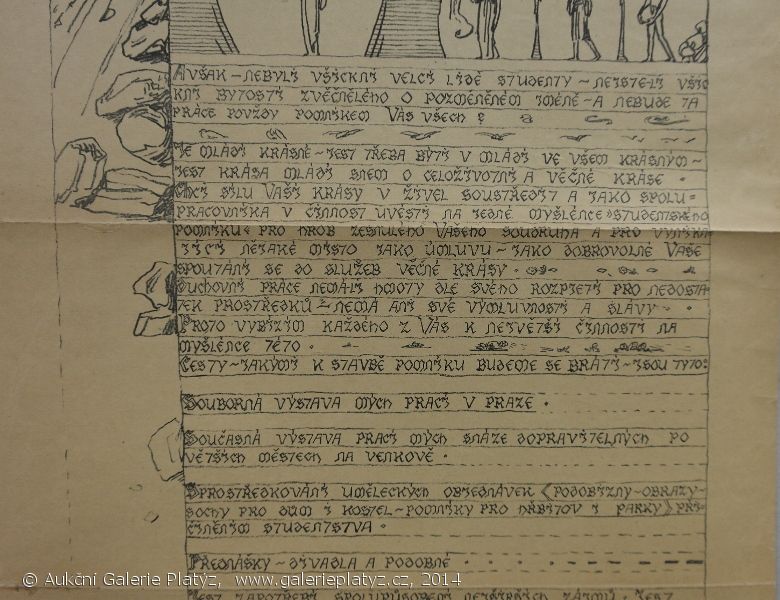 AVŠAK – NEBYLI VŠICKNI VELCÍ LIDÉ STUDENTY – NEJSTE-LI VŠIC
KNI BYTOSTÍ ZVĚČNĚLÉHO O POZMĚNĚNÉM JMÉNĚ – A NEBUDE TA
PRÁCE POVŽDY POMNÍKEM VÁS VŠECH ?
JE MLÁDÍ KRÁSNÉ – JEST TŘEBA BÝTI V MLÁDÍ VE VŠEM KRÁSNÝM –
JEST KRÁSA MLÁDÍ SNEM O CELOŽIVOTNÍ A VĚČNÉ KRÁSE .
CHCI SÍLU VAŠÍ KRÁSY V ŽIVEL SOUSTŘEDIT A JAKO SPOLU=
PRACOVNÍKA V ČINNOST UVÉSTI NA JEDNÉ MYŠLÉNCE »STUDENTSKÉHO
POMNÍKU« PRO HROB ZESNULÉHO VAŠEHO SOUDRUHA A PRO VYNIKA
JÍCÍ NĚJAKÉ MÍSTO JAKO ÚMLUVU – JAKO DOBROVOLNÉ VAŠE
SPOUTÁNÍ SE DO SLUŽEB VĚČNÉ KRÁSY .
DUCHOVNÍ PRÁCE NEMÁ-LI HMOTY DLE SVÉHO ROZPJETÍ PRO NEDOSTA
TEK PROSTŘEDKŮ – NEMÁ ANI SVÉ VÝMLUVNOSTI A SLÁVY – .
PROTO VYBÍZÍM KAŽDÉHO Z VÁS K NEJVĚTŠÍ ČINNOSTI NA
MYŠLÉNCE TÉTO .
CESTY – JAKÝMI K STAVBĚ POMNÍKU BUDEME SE BRÁTI – JSOU TYTO:
SOUBORNÁ VÝSTAVA MÝCH PRACÍ V PRAZE .
SOUČASNÁ VÝSTAVA PRACÍ MÝCH SNÁZE DOPRAVITELNÝCH PO
VĚTŠÍCH MĚSTECH NA VENKOVĚ .
SPROSTŘEDKOVÁNÍ UMĚLECKÝCH OBJEDNÁVEK (PODOBIZNY – OBRAZY –
SOCHY PRO DŮM I KOSTEL – POMNÍKY PRO HŘBITOV I PARKY) PŘI
ČINĚNÍM STUDENTSTVA .
PŘEDNÁŠKY – DIVADLA A PODOBNÉ .
JEST ZAPOTŘEBÍ SPOLUPŮSOBENÍ NEJŠIRŠÍCH ZÁJMŮ . JEST
© Aukční Galerie Platýz, www.galerieplatyz.cz, 2014